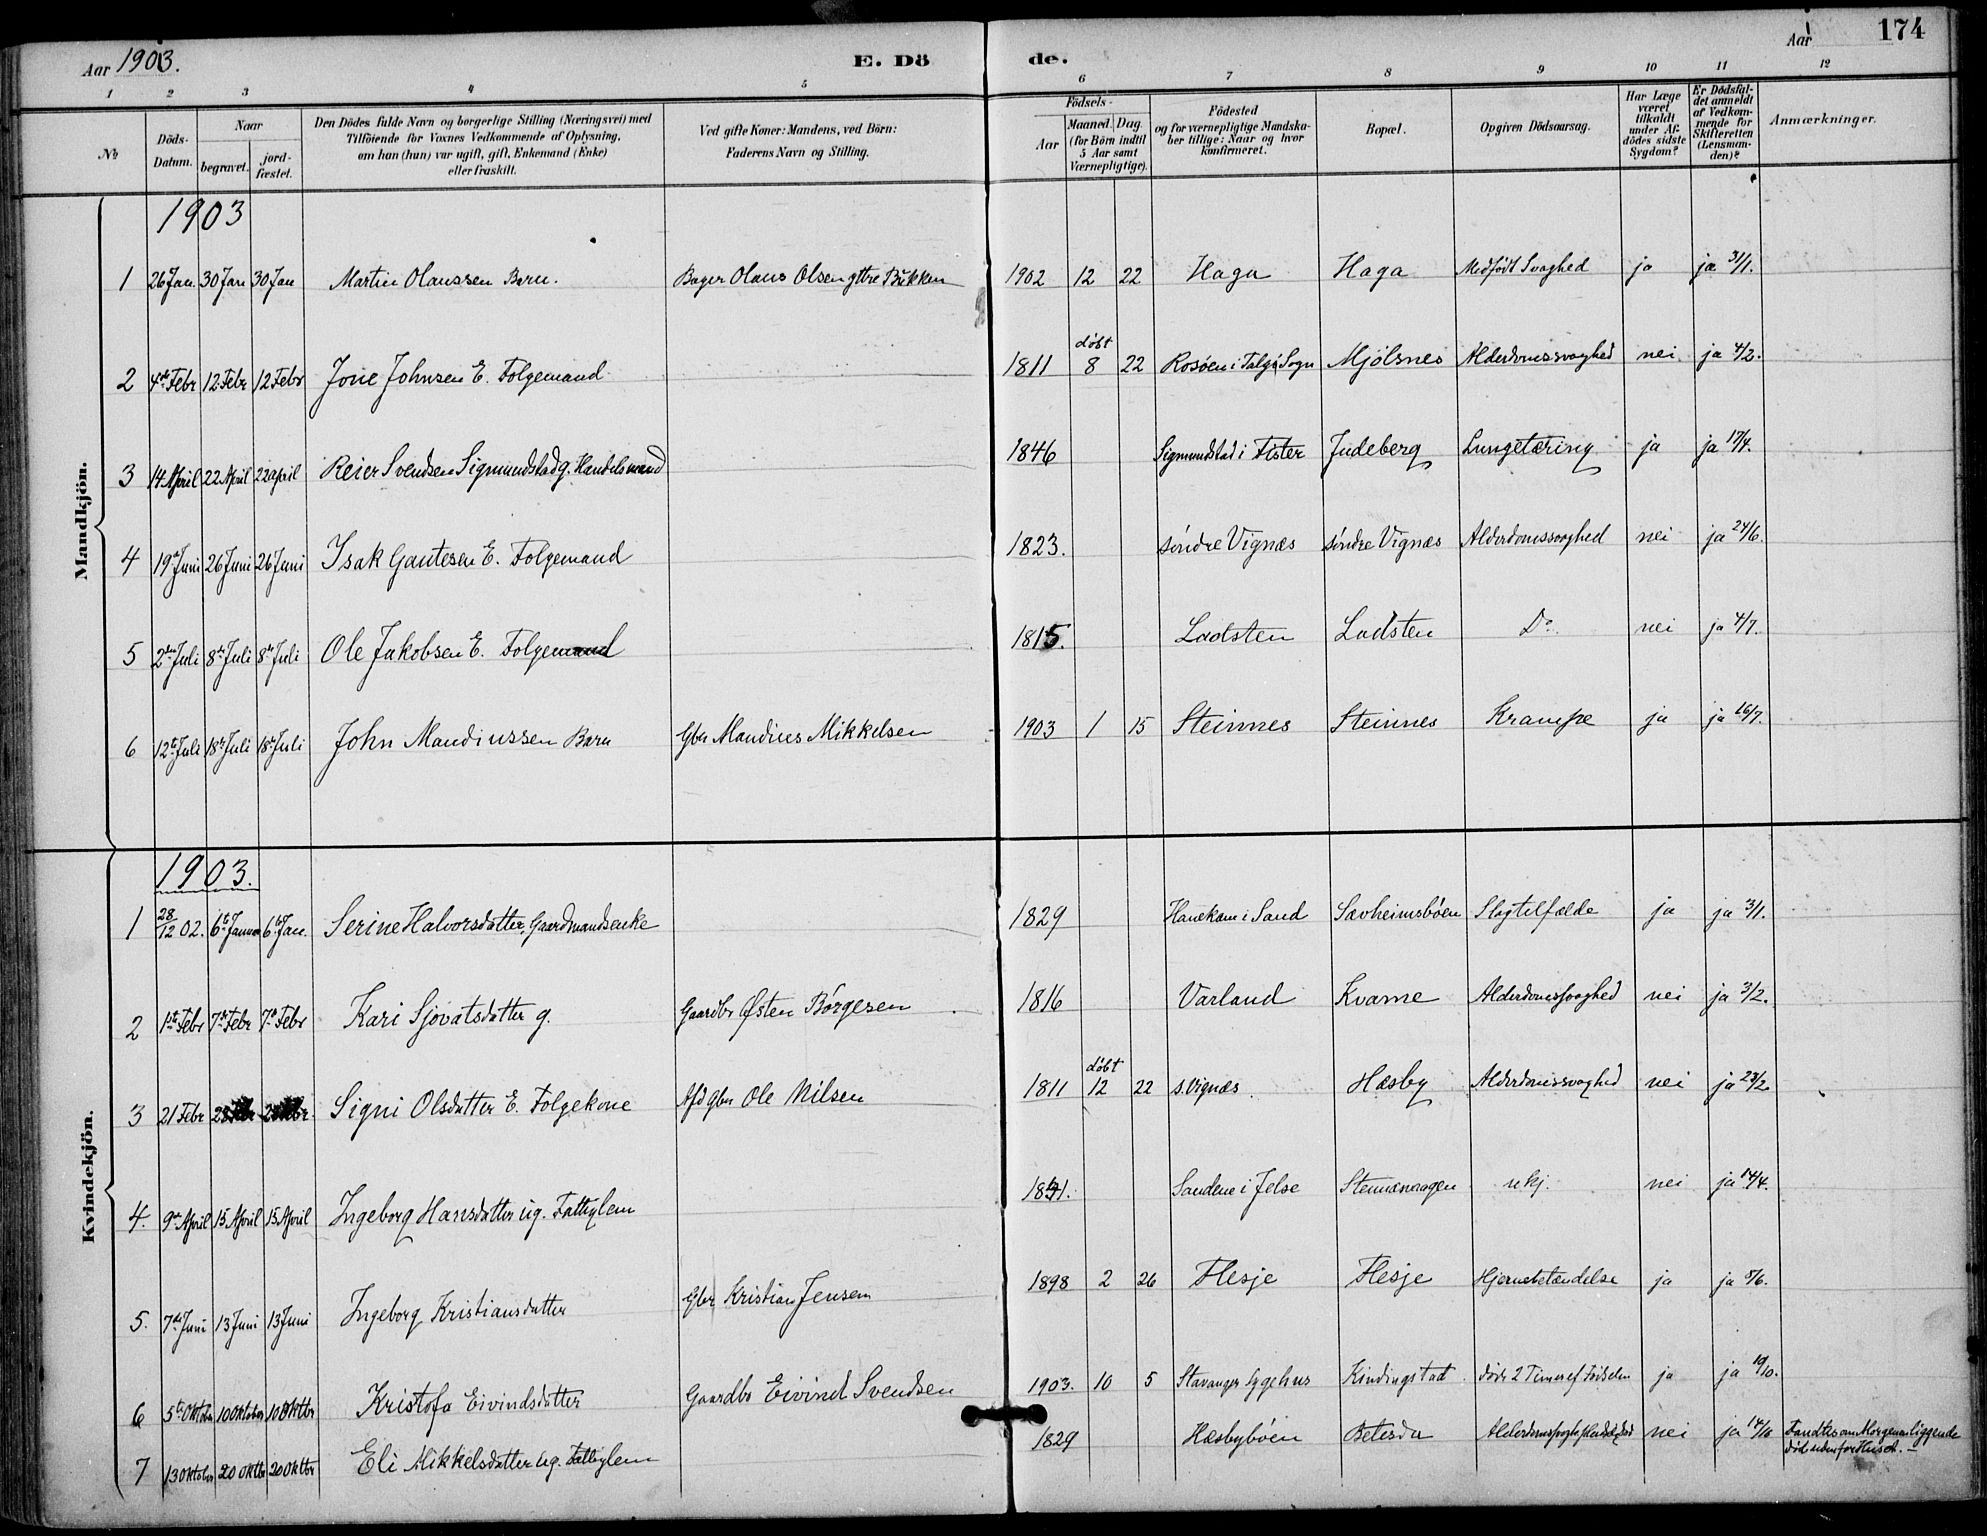 Aar 1903.
E. Dö
de.
Aar
174
1 2 3 4 5 6 7 8 9 10 11 12
No
Döds-Datum.
Naar
begravet.
jord-fæstet.
Den Dödes fulde Navn og borgerlige Stilling (Næringsvei) med
Tilföiende for Voxnes Vedkommende af Oplysning,
om han (hun) var ugift, gift, Enkemand (Enke)
eller fraskilt.
Ved gifte Koner: Mandens, ved Börn:
Faderens Navn og Stilling.
Födsels-
Aar
Maaned. Dag.
(for Börn indtil
5 Aar samt
Værnepligtige).
Födested
og for værnepligtige Mandska-
ber tillige: Naar og hvor
konfirmeret.
Bopæl.
Opgiven Dödsaarsag.
Har Læge
været
tilkaldt
under Af-
dödes sidste
Sygdom?
Er Dödsfal-
det anmeldt
af Vedkom-
mende for
Skifteretten
(Lensman-
den)?
Anmærkninger.
Mandkjön.
1903
1 26 Jan. 30 Jan 30 Jan Martin Olaussen Barn. Bager Olaus Olsen yttre Bukken 1902 12 22 Haga Haga Medfödt Svaghed ja ja 31/1.
2 4de Febr 12 Febr 12 Febr Jone Johnsen E. Folgemand 1811 döbt 8 22 Rosöen i Talgö Sogn Mjölsnes Alderdomssvaghed nei ja 4/2.
3 14 April 22 April 22 april Reier Svendsen Sigmundstad g. Handelsmand 1846 Sigmundstad i Fister Judeberg Lungetæring ja ja 17/4.
4 19de Juni 26 Juni 26 Juni Isak Gautesen E. Folgemand 1823. söndre Vignæs söndre Vignæs Alderdomssvaghed nei ja 24/6.
5 2den Juli 8de Juli 8de Juli Ole Jakobsen E. Folgemand 1815. Ladsten Ladsten Do. nei ja 4/7.
6 12te Juli 18de Juli 18de Juli John Mandiussen Barn Gbr Mandius Mikkelsen 1903 1 15 Steinnes Steinnes Krampe ja ja 16/7.
Kvindekjön.
1903.
1 28/12 02. 6te Januar 6te Jan. Serine Halvorsdatter, Gaardmandsenke 1829 Hanekam i Sand Søvheimsböen Slagtilfælde ja ja 3/1.
2 1ste Febr 7de Febr 7de Febr Kari Sjovatsdatter g. Gaardbr Østen Börgesen 1816 Varland Kvame Alderdomssvaghed nei ja 3/2.
3 21 Febr 28 Febr 28 Febr. Signi Olsdatter E. Folgekone Afd gbr Ole Nilsen 1811 döbt 12 22 s. Vignæs. Hæsby Alderdomssvaghed nei ja 23/2
4. 9de April 15 April 15 April Ingeborg Hansdatter ug. Fattiglem Sandene i Jelse ukj. nei ja 14/4.
5. 7de Juni 13 Juni 13 Juni Ingeborg Kristiansdatter Gbr Kristian Jensen 1898 2 26 Hesje Hesje Hjernebetændelse ja ja 8/6.
6 5te Oktober 10 Oktober 10 Oktbr Kristofa Eivindsdatter Gaardbr Eivind Svendsen 1903. 10 5 Stavanger sygehus Kindingstad döde 2 Timer ef Födselen ja ja 10/10.
7 13 Oktober 20 Oktbr 20 Oktbr Eli Mikkelsdatter ug. Fattiglem 1829 Hæsbyböen Betesda nei ja 14/10 Fandtes om Morgenen liggende
död udenfor Huset.